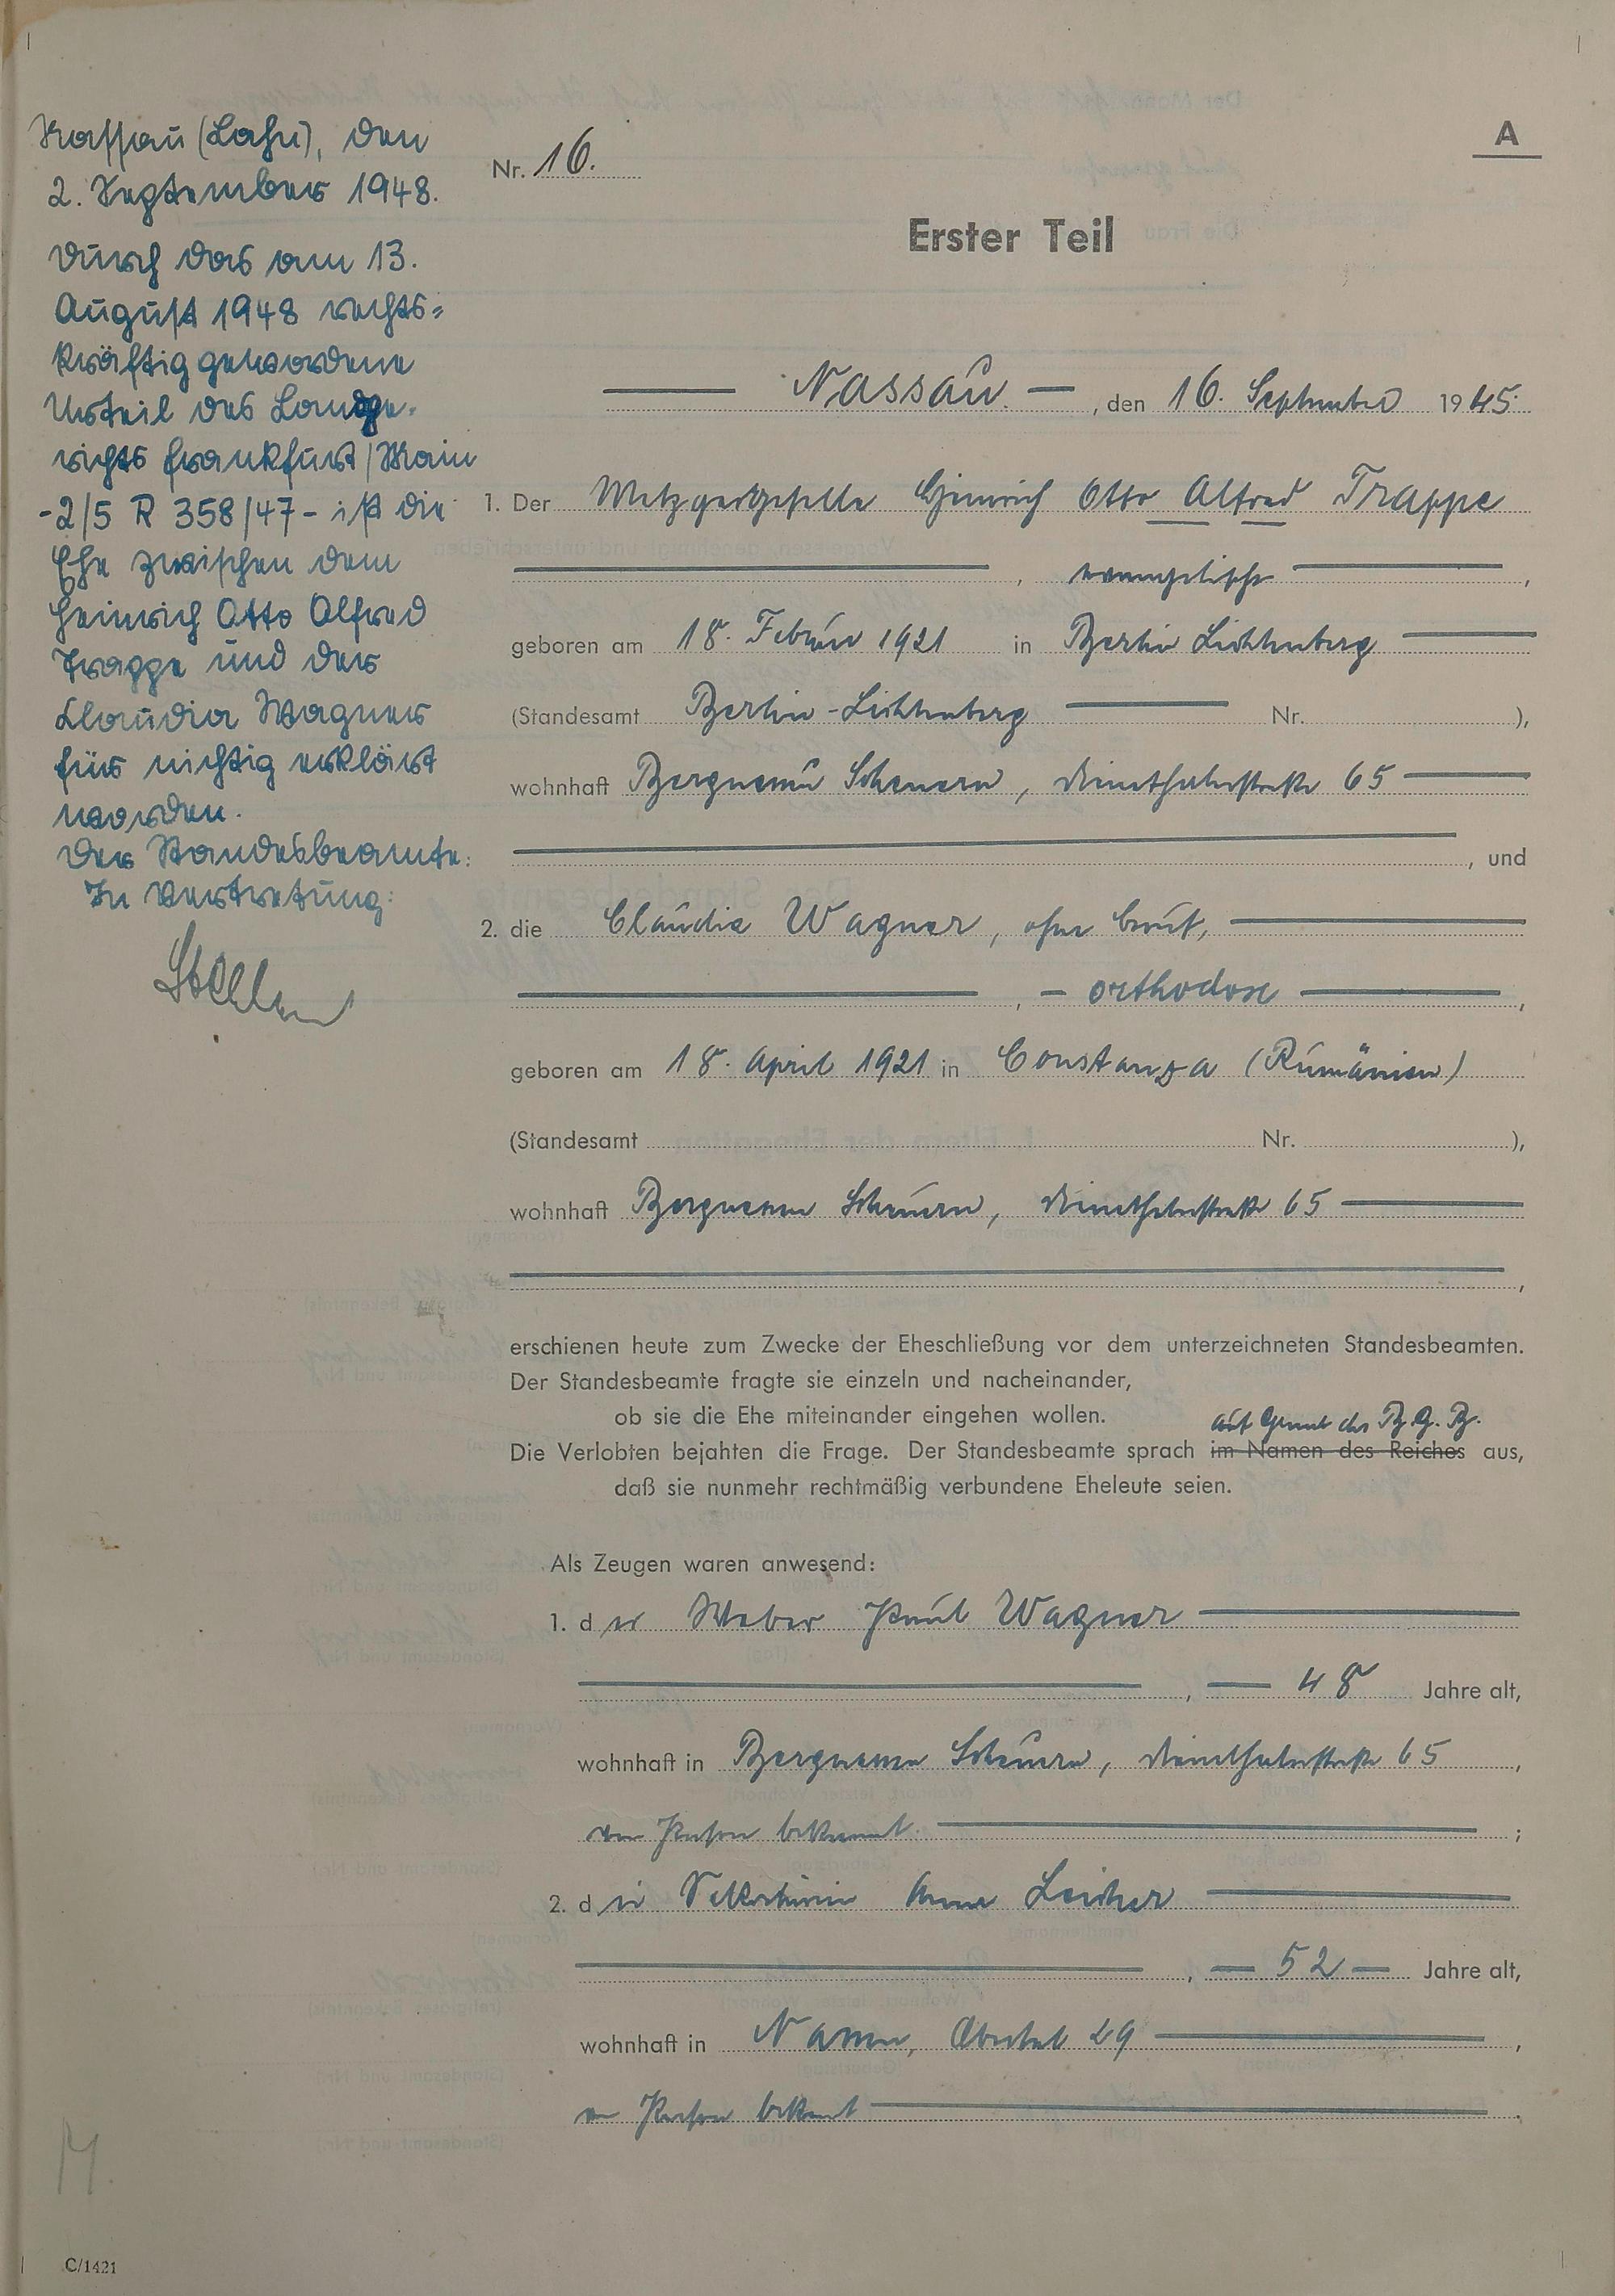 Nassau (Lahn), den
2. September 1948.
Durch das am 13.
August 1948 rechts=
kräftig gewordene
Urteil des Landge-
richts Frankfurt/Main
-2/5 R 358/47- ist die
Ehe zwischen dem
Heinrich Otto Alfred
Trappe und der
Claudia Wagner
für nichtig erklärt
worden.
Der Standesbeamte:
In Vertretung:
A
Nr. 16.
Erster Teil
Nassau. , den 16. September 1945.
1. Der Metzgergeselle Heinrich Otto Alfred Trappe
, evangelisch ,
geboren am 18. Februar 1921 in Berlin Lichtenberg
(Standesamt Berlin-Lichtenberg Nr. ),
wohnhaft Bergnassau Scheuern, Dienethalerstraße 65
, und
2. die Claudia Wagner, ohne Beruf,
, - orthodox ,
geboren am 18. April 1921 in Constanza (Rumänien)
(Standesamt Nr. ),
wohnhaft Bergnassau Scheuern, Dienethalerstraße 65
,
erschienen heute zum Zwecke der Eheschließung vor dem unterzeichneten Standesbeamten.
Der Standesbeamte fragte sie einzeln und nacheinander,
ob sie die Ehe miteinander eingehen wollen.
auf Grund des B.G.B.
Die Verlobten bejahten die Frage. Der Standesbeamte sprach im Namen des Reiches aus,
daß sie nunmehr rechtmäßig verbundene Eheleute seien.
Als Zeugen waren anwesend:
1. der Weber Paul Wagner
, 48 Jahre alt,
wohnhaft in Bergnassau Scheuern, Dienethalerstraße 65 ,
von Person bekannt ;
2. die Sekretärin Anna Leicher
, 52 Jahre alt,
wohnhaft in Nassau, Obertal 29 ,
von Person bekannt .
M.
C/1421